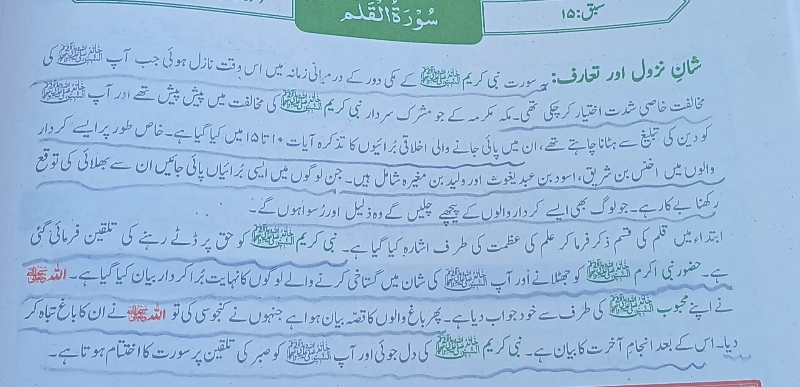 سبق: ۱۵
سُوْرَةُ الْقَلَم
شانِ نزول اور تعارف: یہ سورت نبی کریم خَاتَمُ النَّبِیّٖنَ ﷺ کے مکی دور کے درمیانی زمانہ میں اس وقت نازل ہوئی جب آپ خَاتَمُ النَّبِیّٖنَ ﷺ کی
مخالفت خاصی شدت اختیار کر چکی تھی۔ مکہ مکرمہ کے جو مشرک سردار نبی کریم خَاتَمُ النَّبِیّٖنَ ﷺ کی مخالفت میں پیش پیش تھے اور آپ خَاتَمُ النَّبِیّٖنَ ﷺ
کو دین کی تبلیغ سے ہٹانا چاہتے تھے، ان میں پائی جانے والی اخلاقی بُرائیوں کا تذکرہ آیات ۱۰ تا ۱۵ میں کیا گیا ہے۔ خاص طور پر ایسے کردار
والوں میں اخنس بن شریق، اسود بن عبد یغوث اور ولید بن مغیرہ شامل ہیں۔ جن لوگوں میں ایسی بُرائیاں پائی جائیں ان سے بھلائی کی توقع
رکھنا بے کار ہے۔ جو لوگ بھی ایسے کردار والوں کے پیچھے چلیں گے وہ ذلیل اور رُسوا ہوں گے۔
ابتداء میں قلم کی قسم ذکر فرما کر علم کی عظمت کی طرف اشارہ کیا گیا ہے۔ نبی کریم خَاتَمُ النَّبِیّٖنَ ﷺ کو حق پر ڈٹے رہنے کی تلقین فرمائی گئی
ہے۔ حضور نبی اکرم خَاتَمُ النَّبِیّٖنَ ﷺ کو جھٹلانے اور آپ خَاتَمُ النَّبِیّٖنَ ﷺ کی شان میں گستاخی کرنے والے لوگوں کا نہایت بُرا کردار بیان کیا گیا ہے۔ اللہ
نے اپنے محبوب خَاتَمُ النَّبِیّٖنَ ﷺ کی طرف سے خود جواب دیا ہے۔ پھر باغ والوں کا قصّہ بیان ہوا ہے جنہوں نے کنجوسی کی تو اللہ نے ان کا باغ تباہ کر
دیا۔ اس کے بعد انجامِ آخرت کا بیان ہے۔ نبی کریم خَاتَمُ النَّبِیّٖنَ ﷺ کی دل جوئی اور آپ خَاتَمُ النَّبِیّٖنَ ﷺ کو صبر کی تلقین پر سورت کا اختتام ہوتا ہے۔